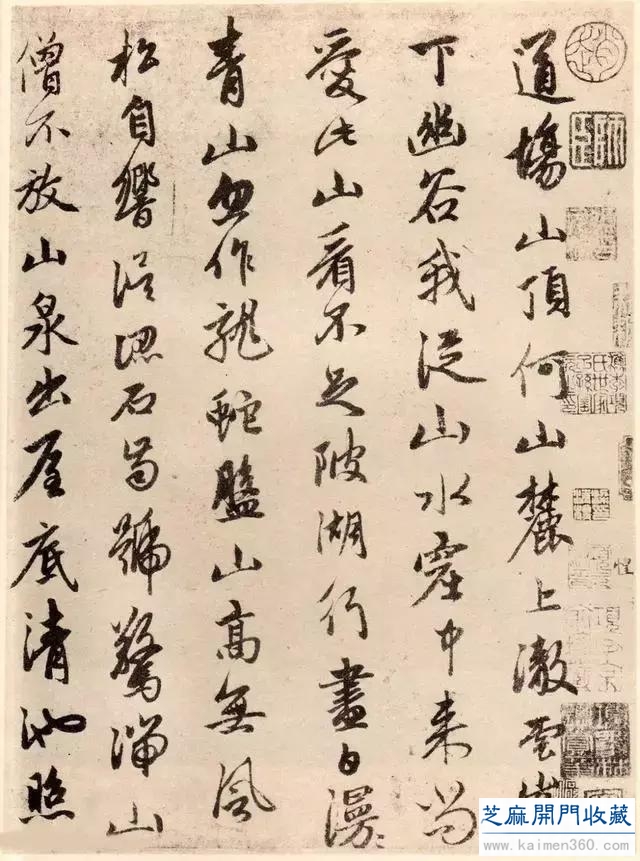 道場山頂何山麓上澈雲峯
下幽谷我從山水窟中来尚
愛此山看不足陂湖行盡白漫〻
青山忽作龍蛇盤山高無風
松自響誤認石齒號驚湍山
僧不放山泉出屋底清池照
芝麻開門收藏
www.kaimen360.com